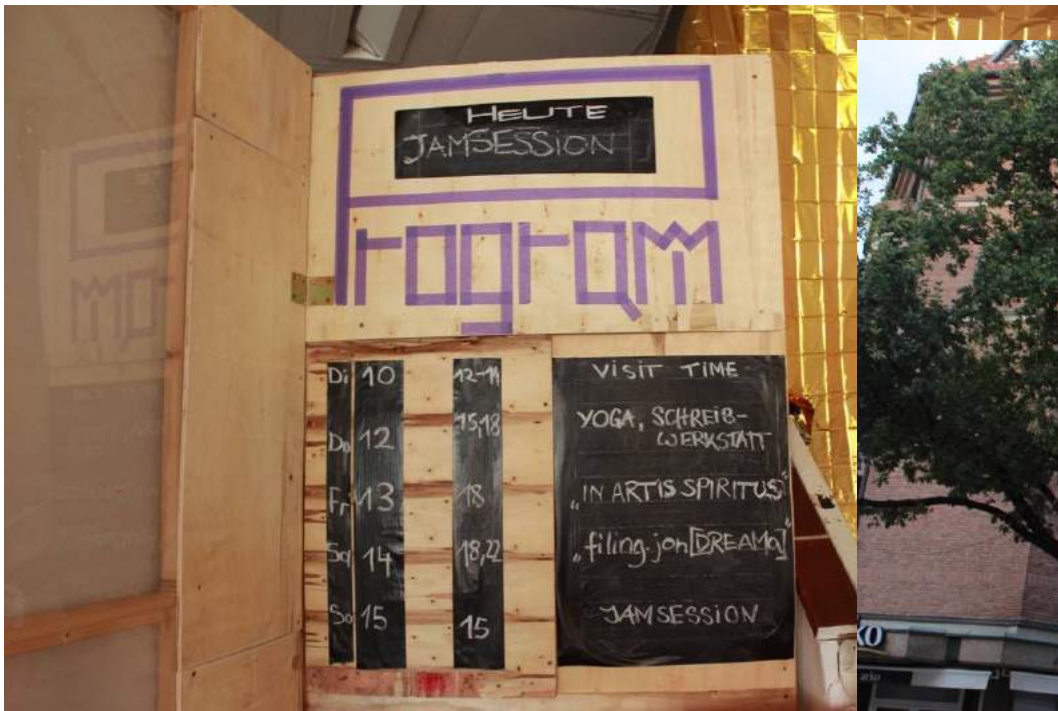 HEUTE
JAMSESSION
Program
Di 10 12-14 VISIT TIME
Do 12 15,18 YOGA, SCHREIB-
WERKSTATT
Fr 13 18 „IN ARTIS SPIRITUS"
Sa 14 18,22 „filing.jon[DREAMa]"
So 15 15 JAMSESSION
KO
ario